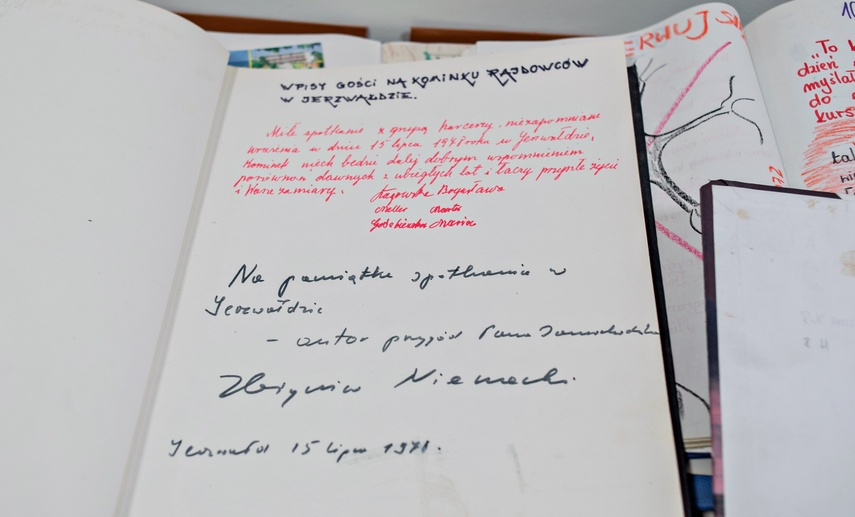 WPISY GOŚCI NA KOMINKU RAJDOWCÓW
W JERZWAŁDZIE.
Miłe spotkanie z grupą harcerzy, niezapomniane
wrażenia w dniu 15 lipca 1971 roku w Jerzwałdzie,
Kominek niech będzie dalej dobrym wspomnieniem
dawnych z ubiegłych lat i łączy przyszłe życie
i Wasze zamiary.
Bogusława
Maria
Na pamiątkę spotkania w
Jerzwałdzie
- autor przygód Pana Samochodzika
Zbigniew Nienacki.
Jerzwałd 15 lipca 1971.
"To
dzień
do
kurs